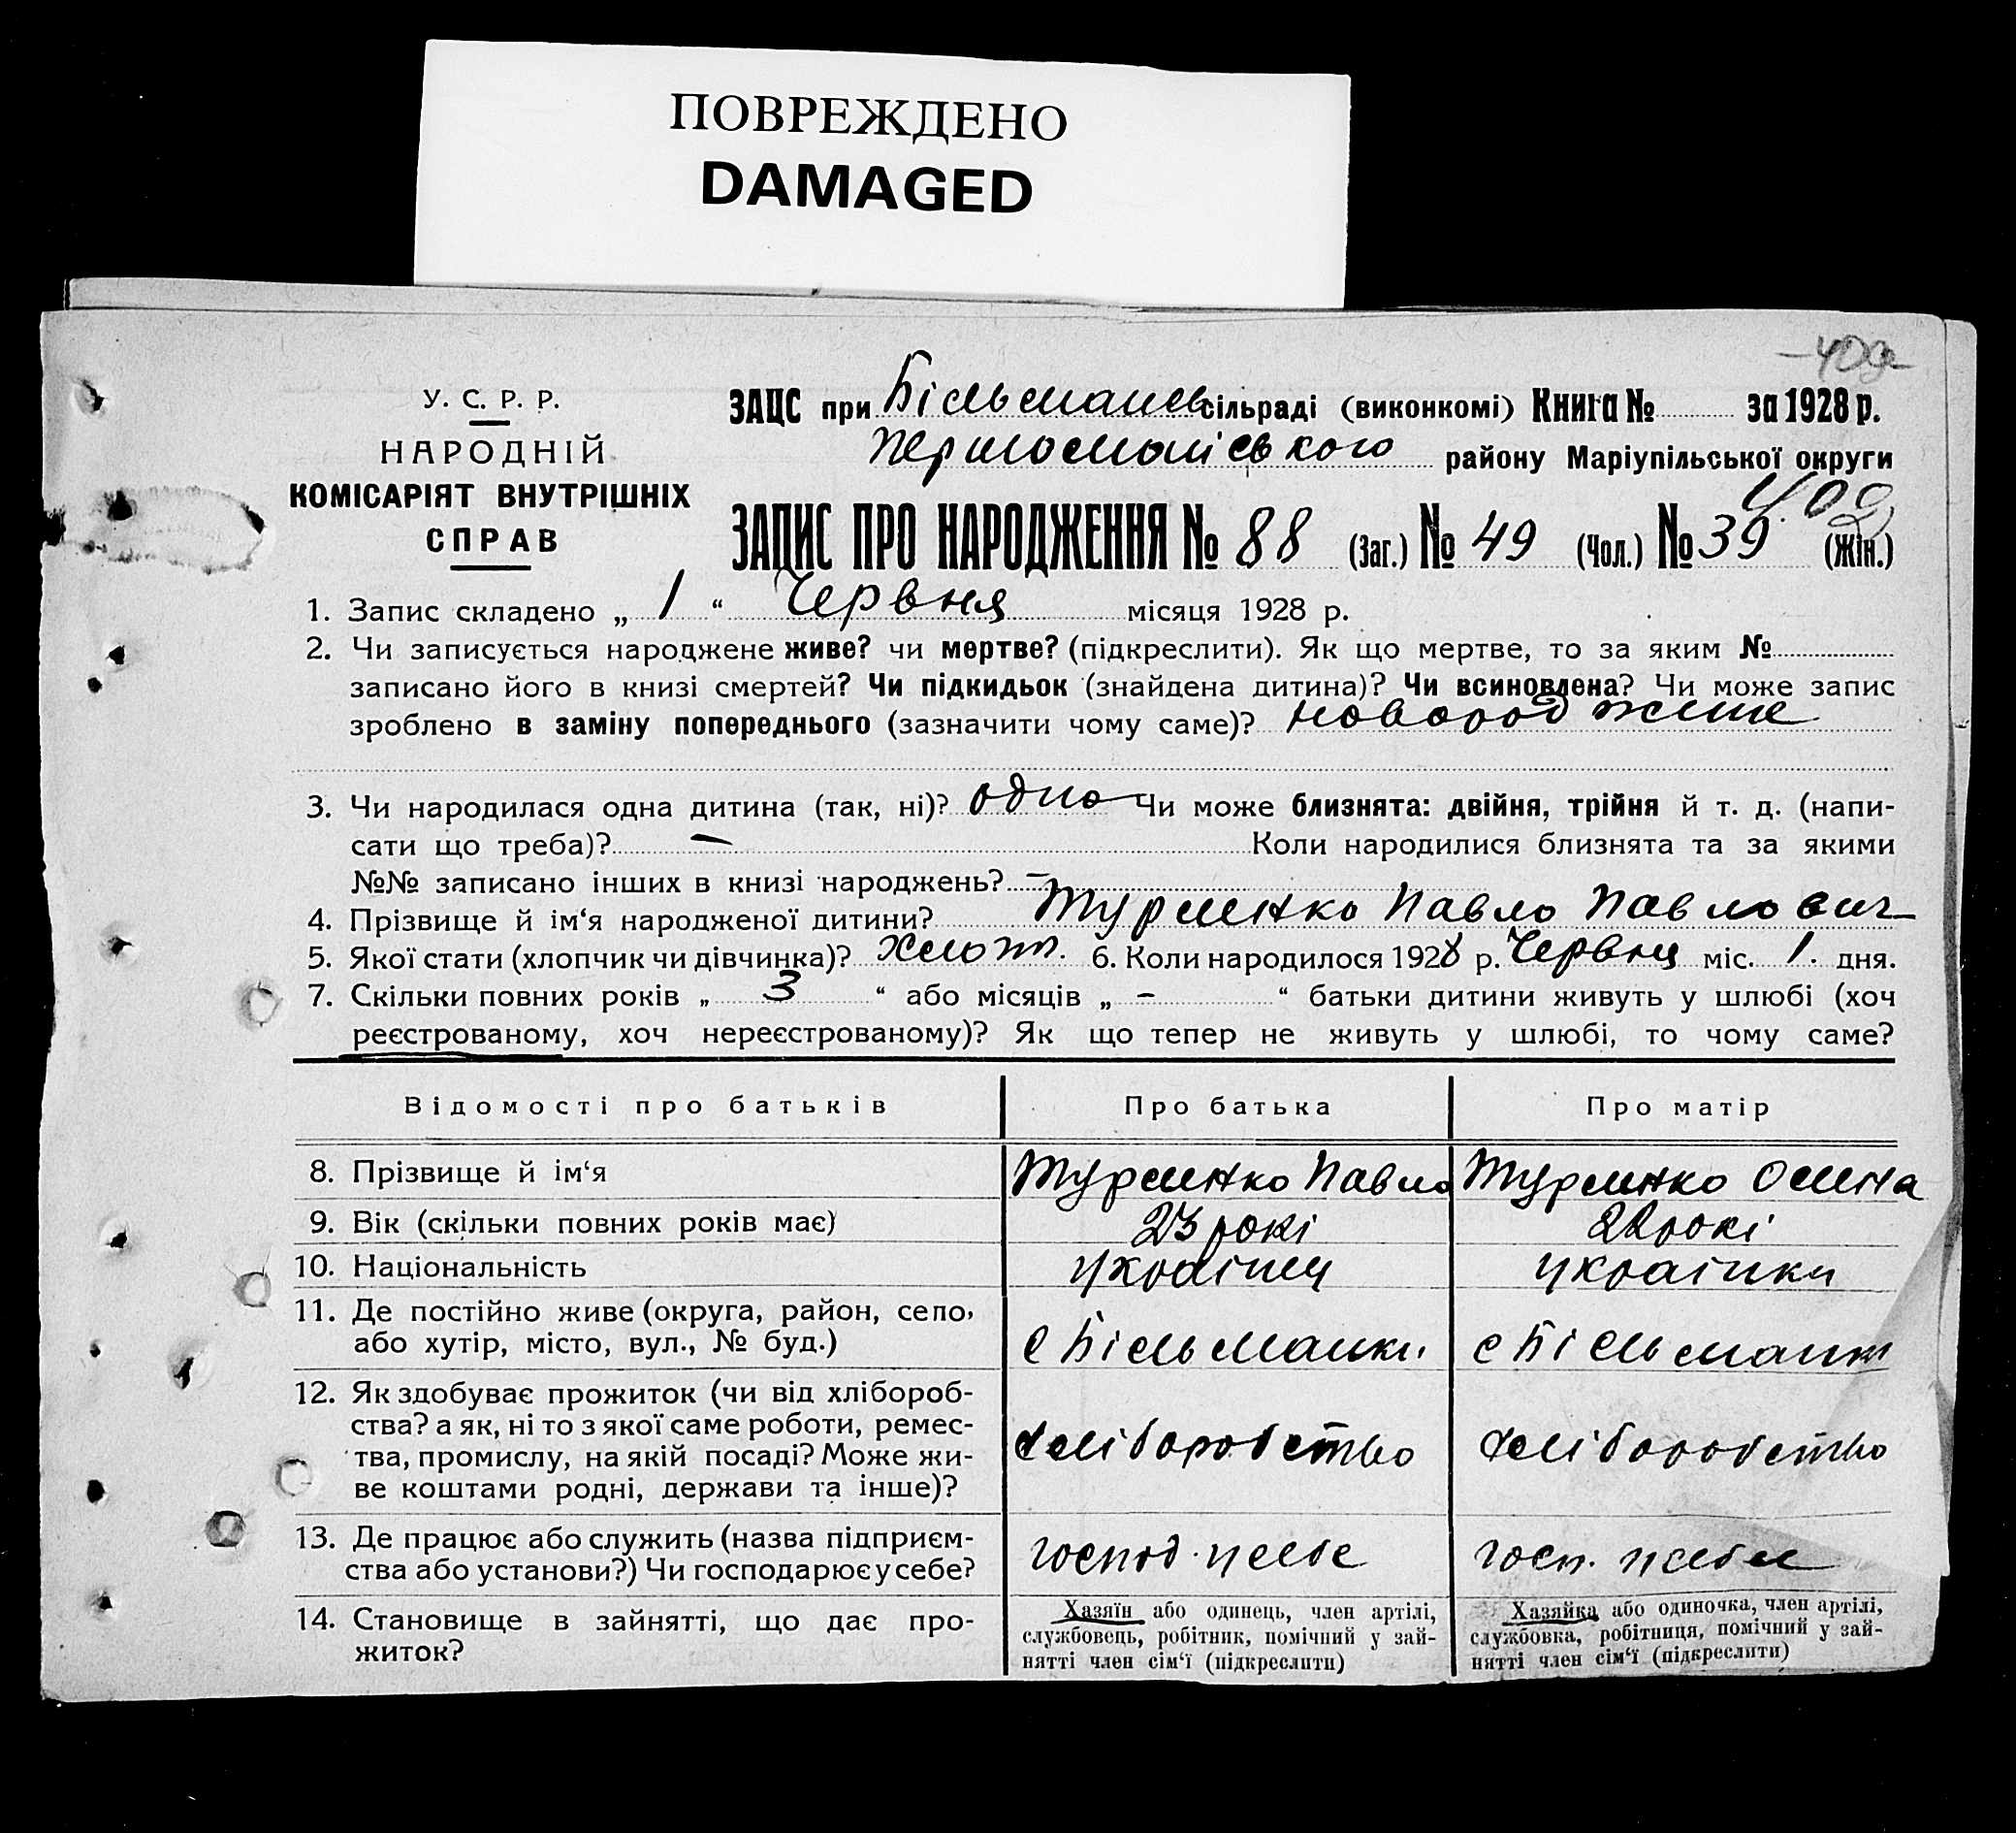 ПОВРЕЖДЕНО
DAMAGED
У. С. Р. Р.
НАРОДНІЙ
КОМІСАРІЯТ ВНУТРІШНІХ
СПРАВ
ЗАЦС при Більмансь сільраді (виконкомі) Книга № за 1928 р.
Першомайського району Маріупільської округи
409
ЗАПИС ПРО НАРОДЖЕННЯ № 88 (Заг.) № 49 (Чол.) № 39 (Жін.)
1. Запис складено „ 1 “ Червня місяця 1928 р.
2. Чи записується народжене живе? чи мертве? (підкреслити). Як що мертве, то за яким №
записано його в книзі смертей? Чи підкидьок (знайдена дитина)? Чи всиновлена? Чи може запис
зроблено в заміну попереднього (зазначити чому саме)? новорожене
3. Чи народилася одна дитина (так, ні)? одно Чи може близнята: двійня, трійня й т. д. (напи-
сати що треба)? — Коли народилися близнята та за якими
№№ записано інших в книзі народжень? —
4. Прізвище й ім‘я народженої дитини? Турленко Павло Павлович
5. Якої стати (хлопчик чи дівчинка)? хлоп. 6. Коли народилося 1928 р. Червня міс. 1. дня.
7. Скільки повних років „ 3 “ або місяців „ — “ батьки дитини живуть у шлюбі (хоч
реєстрованому, хоч нереєстрованому)? Як що тепер не живуть у шлюбі, то чому саме?
Відомості про батьків Про батька Про матір
8. Прізвище й ім‘я Турленко Павло Турленко Олена
9. Вік (скільки повних років має) 23 рокі 22 рокі
10. Національність українц українки
11. Де постійно живе (округа, район, село,
або хутір, місто, вул., № буд.) с Більманки с Більманк
12. Як здобуває прожиток (чи від хлібороб-
ства? а як, ні то з якої саме роботи, ремес-
тва, промислу, на якій посаді? Може жи-
ве коштами родні, держави та інше)? хліборобство хліборобство
13. Де працює або служить (назва підприєм-
ства або установи?) Чи господарює у себе? господ. у себе госп. у себе
14. Становище в зайнятті, що дає про-
житок?
Хазяїн або одинець, член артілі,
службовець, робітник, помічний у зай-
нятті член сім‘ї (підкреслити)
Хазяйка або одиночка, член артілі,
службовка, робітниця, помічний у зай-
нятті член сім‘ї (підкреслити)